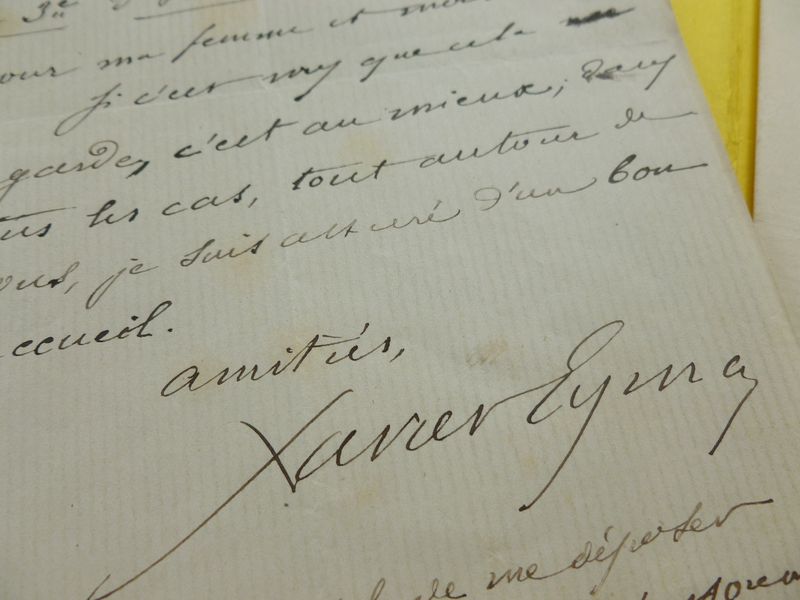 3e
pour ma femme et moi
Si c'est vray que cela
garder, c'est au mieux; dans
tous les cas, tout autour de
vous, je suis assuré d'un bon
accueil.
amitiés,
Xavier Eyma
de me déposer